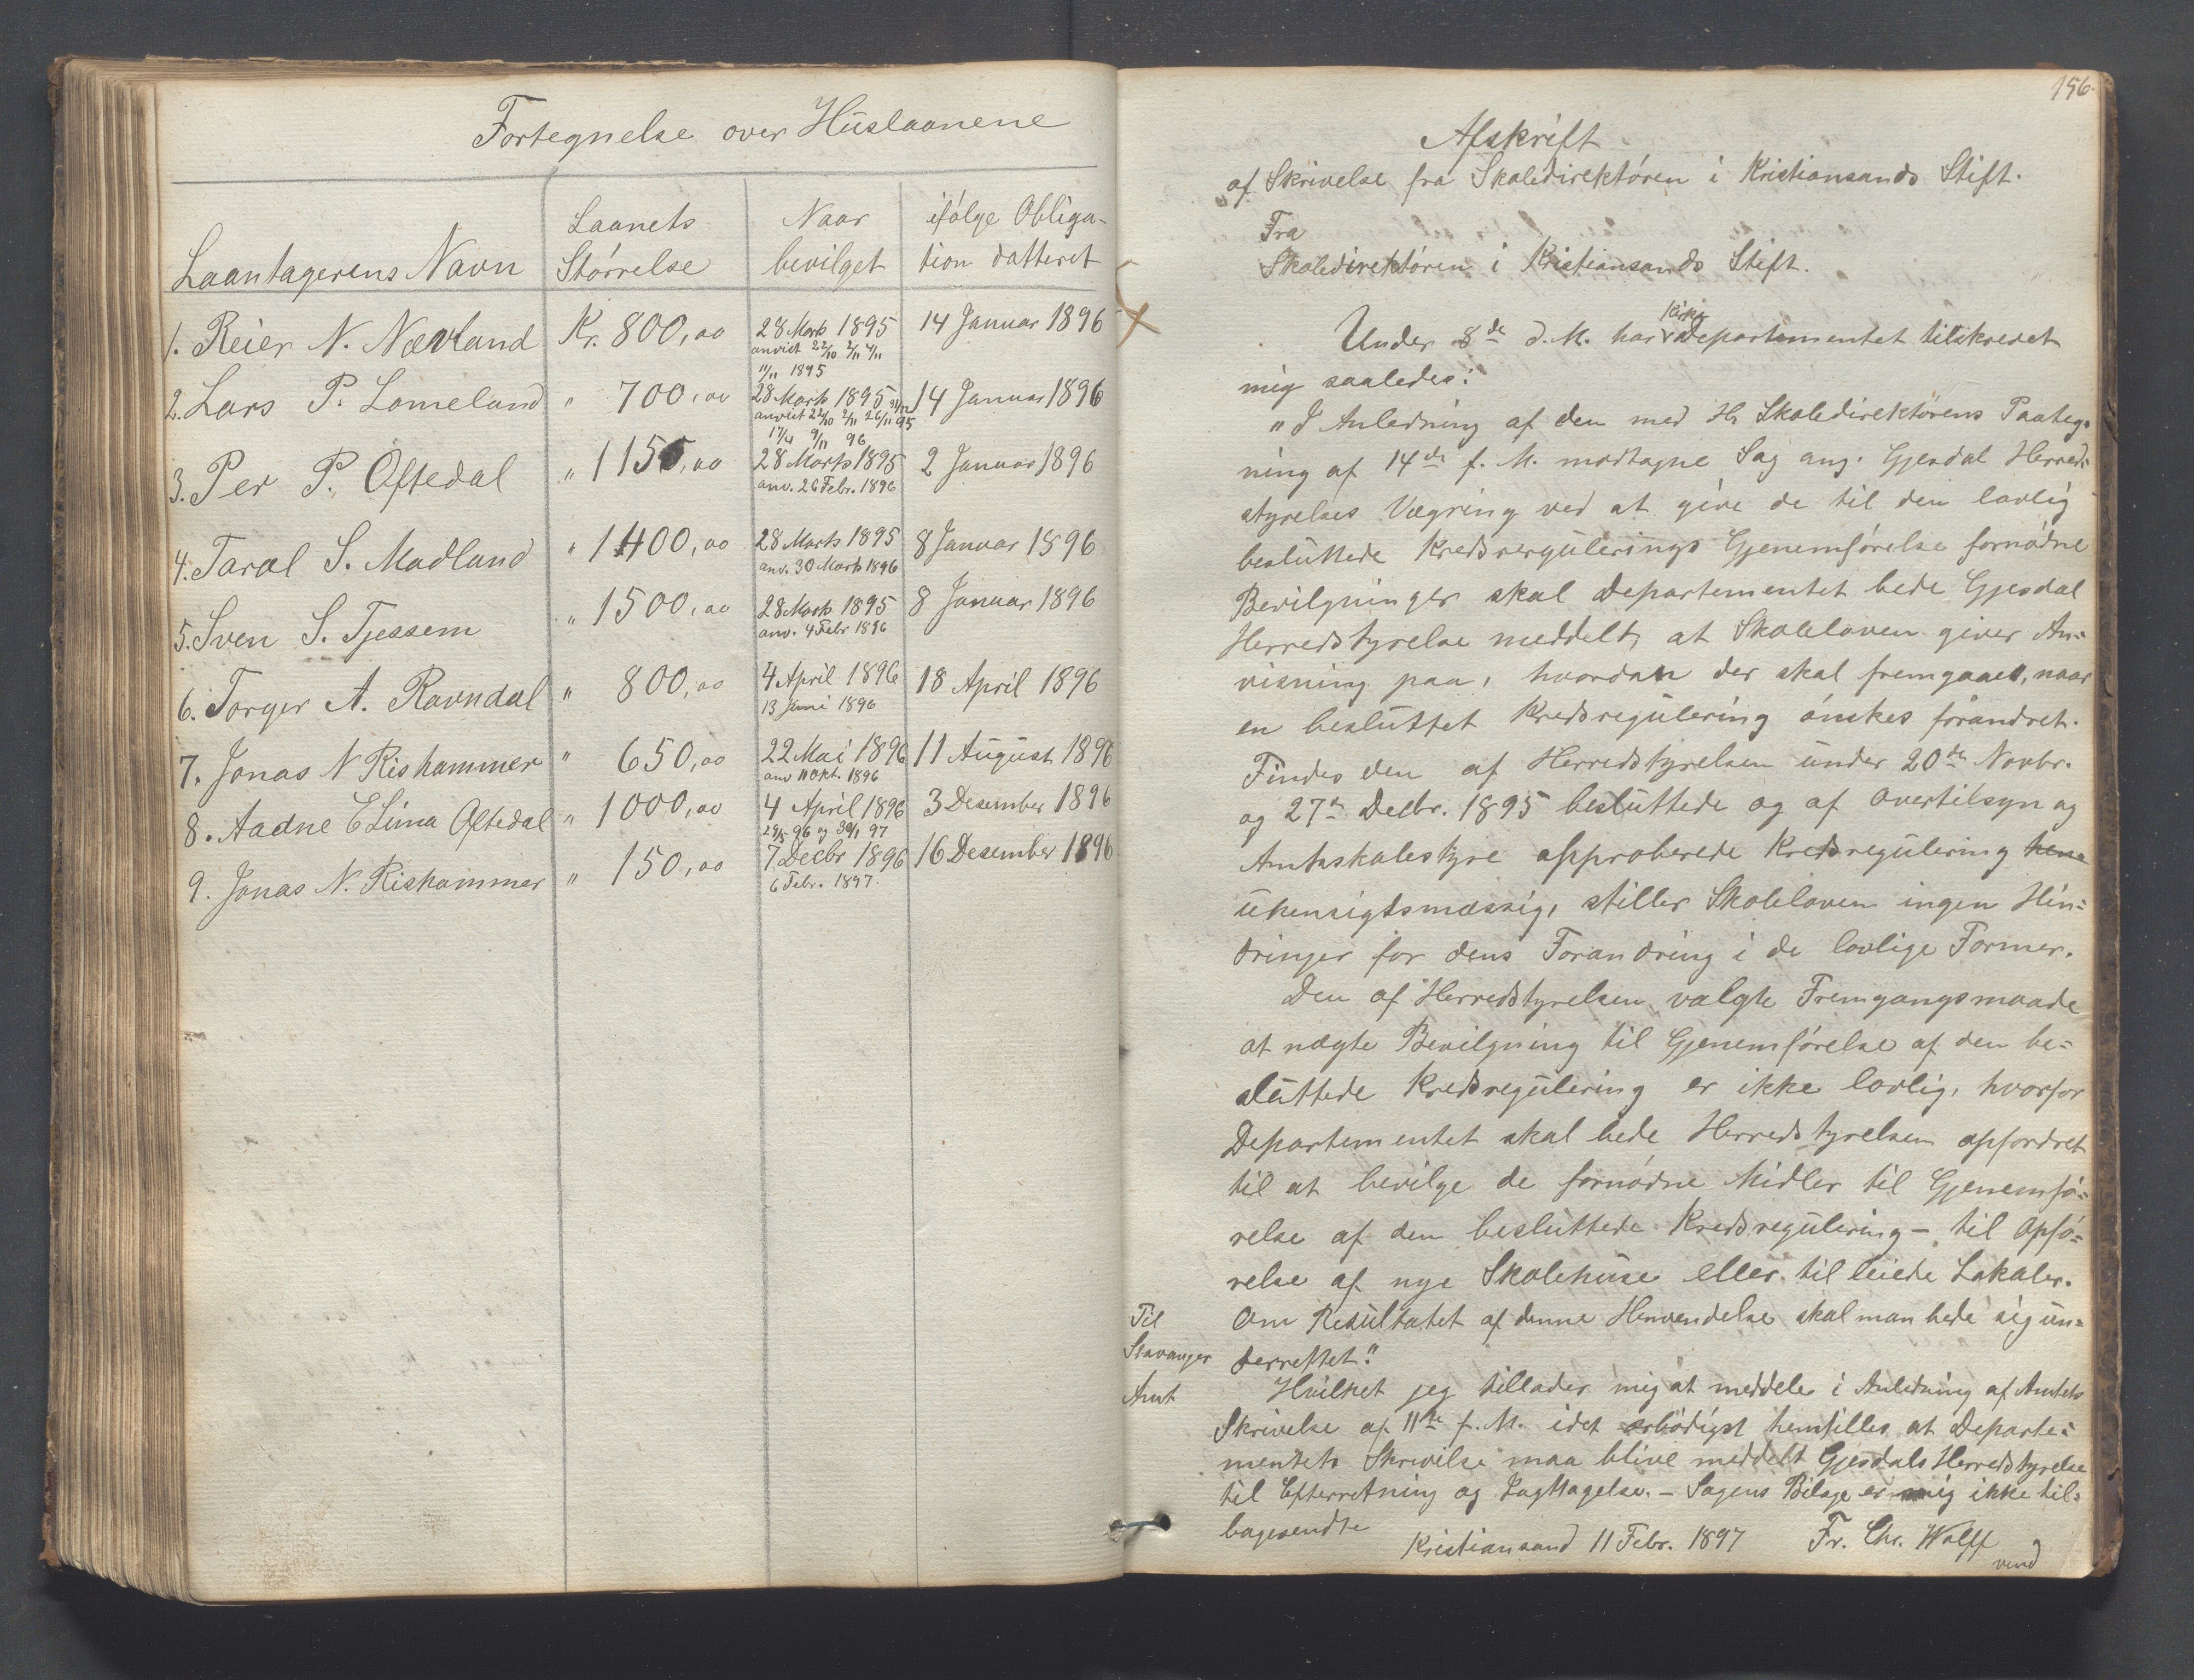 Fortegnelse over Huslaanene
Laantagerens Navn
Laanets Størrelse
Naar bevilget
ifølge Obliga-
tion datteret
1. Reier N. Nævland Kr. 800,00 28 Marts 1895 14 Januar 1896
anvist 22/10 2/11 4/11
11/11 1895
2. Lars P. Lomeland " 700,00 28 Marts 1895 14 Januar 1896
anvist 22/10 2/11 26/11 95
17/4 9/11 96
3. Per P. Oftedal " 1150,00 28 Marts 1895 2 Januar 1896
anv. 26 Febr. 1896
4. Taral S. Madland " 1400,00 28 Marts 1895 8 Januar 1896
anv. 30 Marts 1896
5. Sven S. Tjessem " 1500,00 28 Marts 1895 8 Januar 1896
anv. 4 Febr 1896
6. Torger A. Ravndal " 800,00 4 April 1896 18 April 1896
13 Juni 1896
7. Jonas N Riskammer " 650,00 22 Mai 1896 11 August 1896
anv 11 Okt. 1896
8. Aadne E Lima Oftedal " 1000,00 4 April 1896 3 Desember 1896
29/5 96 og 30/1 97
9. Jonas N. Riskammer " 150,00 7 Decbr 1896 16 Desember 1896
6 Febr. 1897.
156.
Afskrift
af Skrivelse fra Skoledirektøren i Kristiansands Stift.
Fra
Skoledirektøren i Kristiansands Stift.
Kirke
Under 8de d. M. har Departementet tilskrevet
mig saaledes:
"I Anledning af den med Hr Skoledirektørens Paateg-
ning af 14de f. M. modtagne Sag ang. Gjesdal Herred-
styrelses Vægring ved at give de til den lovlig
besluttede Kredsregulerings Gjenemførelse fornødne
Bevilgninger skal Departementet bede Gjesdal
Herredstyrelse meddelt, at Skoleloven giver An-
visning paa, hvordan der skal fremgaaes, naar
en besluttet Kredsregulering ønskes forandret.
Findes den af Herredstyrelsen under 20de Novbr.
og 27de Decbr. 1895 besluttede og af Overtilsyn og
Amtsskolestyre approberede Kredsregulering hen
uhensigtsmæssig, stiller Skoleloven ingen Hin-
dringer for dens Forandring i de lovlige Former.
Den af Herredstyrelsen valgte Fremgangsmaade
at nægte Bevilgning til Gjenemførelse af den be-
sluttede Kredsregulering er ikke lovlig, hvorfor
Departementet skal bede Herredstyrelsen opfordret
til at bevilge de fornødne Midler til Gjenemfø-
relse af den besluttede Kredsregulering - til Opfø-
relse af nye Skolehuse eller til leiede Lokaler.
Om Resultatet af denne Henvendelse skal man bede sig un-
derrettet."
Til
Stavanger
Amt
Hvilket jeg tillader mig at meddele i Anledning af Amtets
Skrivelse af 11te f. M. idet ærbødigst henstilles at Departe-
mentets Skrivelse maa blive meddelt Gjesdals Herredstyrelse
til Efterretning og Iagttagelse. - Sagens Bilage er mig ikke til-
bagesendte
Kristiansand 11 Febr. 1897 Fr. Chr. Wolff
vend